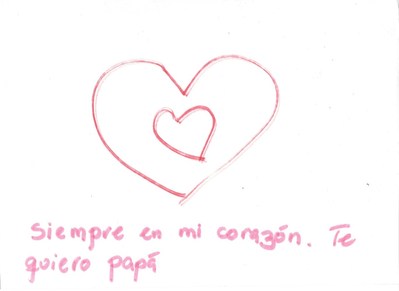 Siempre en mi corazón. Te
quiero papá